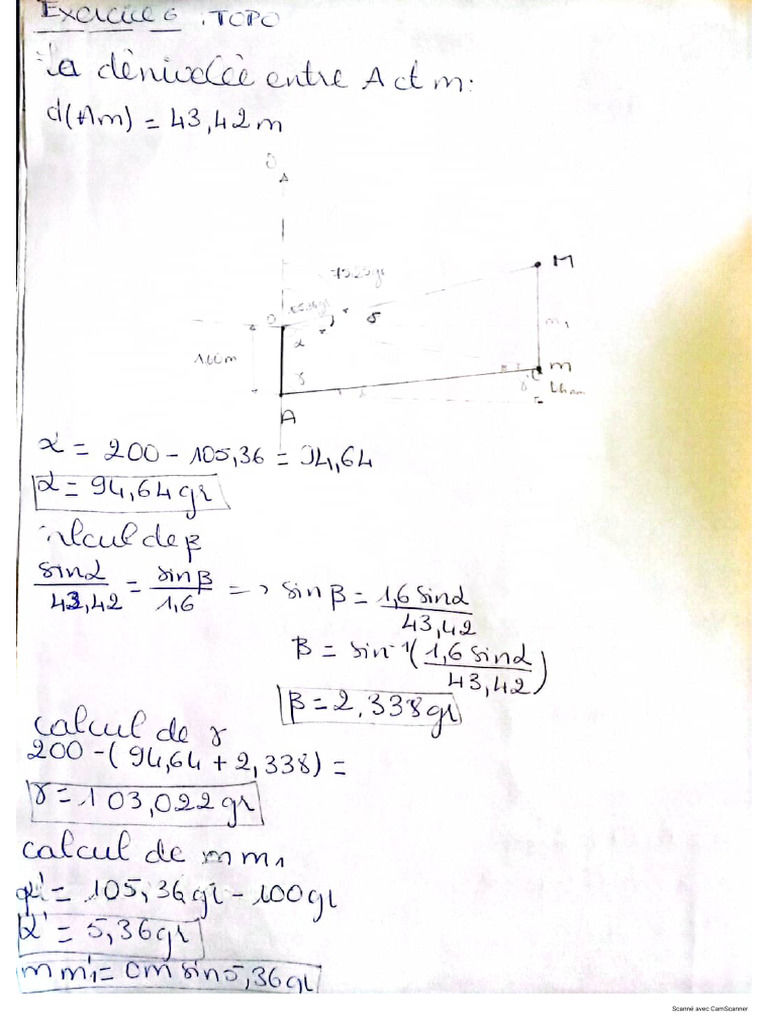 Exercice 6 : TOPO
La dénivelée entre A et m:
d(Am) = 43,42 m
M
O
α
m
A
α = 200 - 105,36 = 94,64
α = 94,64 gr
calcul de β
sin α / 43,42 = sin β / 1,6 => sin β = 1,6 sin α / 43,42
β = sin⁻¹(1,6 sin α / 43,42)
β = 2,338 gr
calcul de γ
200 - (94,64 + 2,338) =
γ = 103,022 gr
calcul de m m1
α' = 105,36 gr - 100 gr
α' = 5,36 gr
m m1 = Om sin 5,36 gr
Scanné avec CamScanner